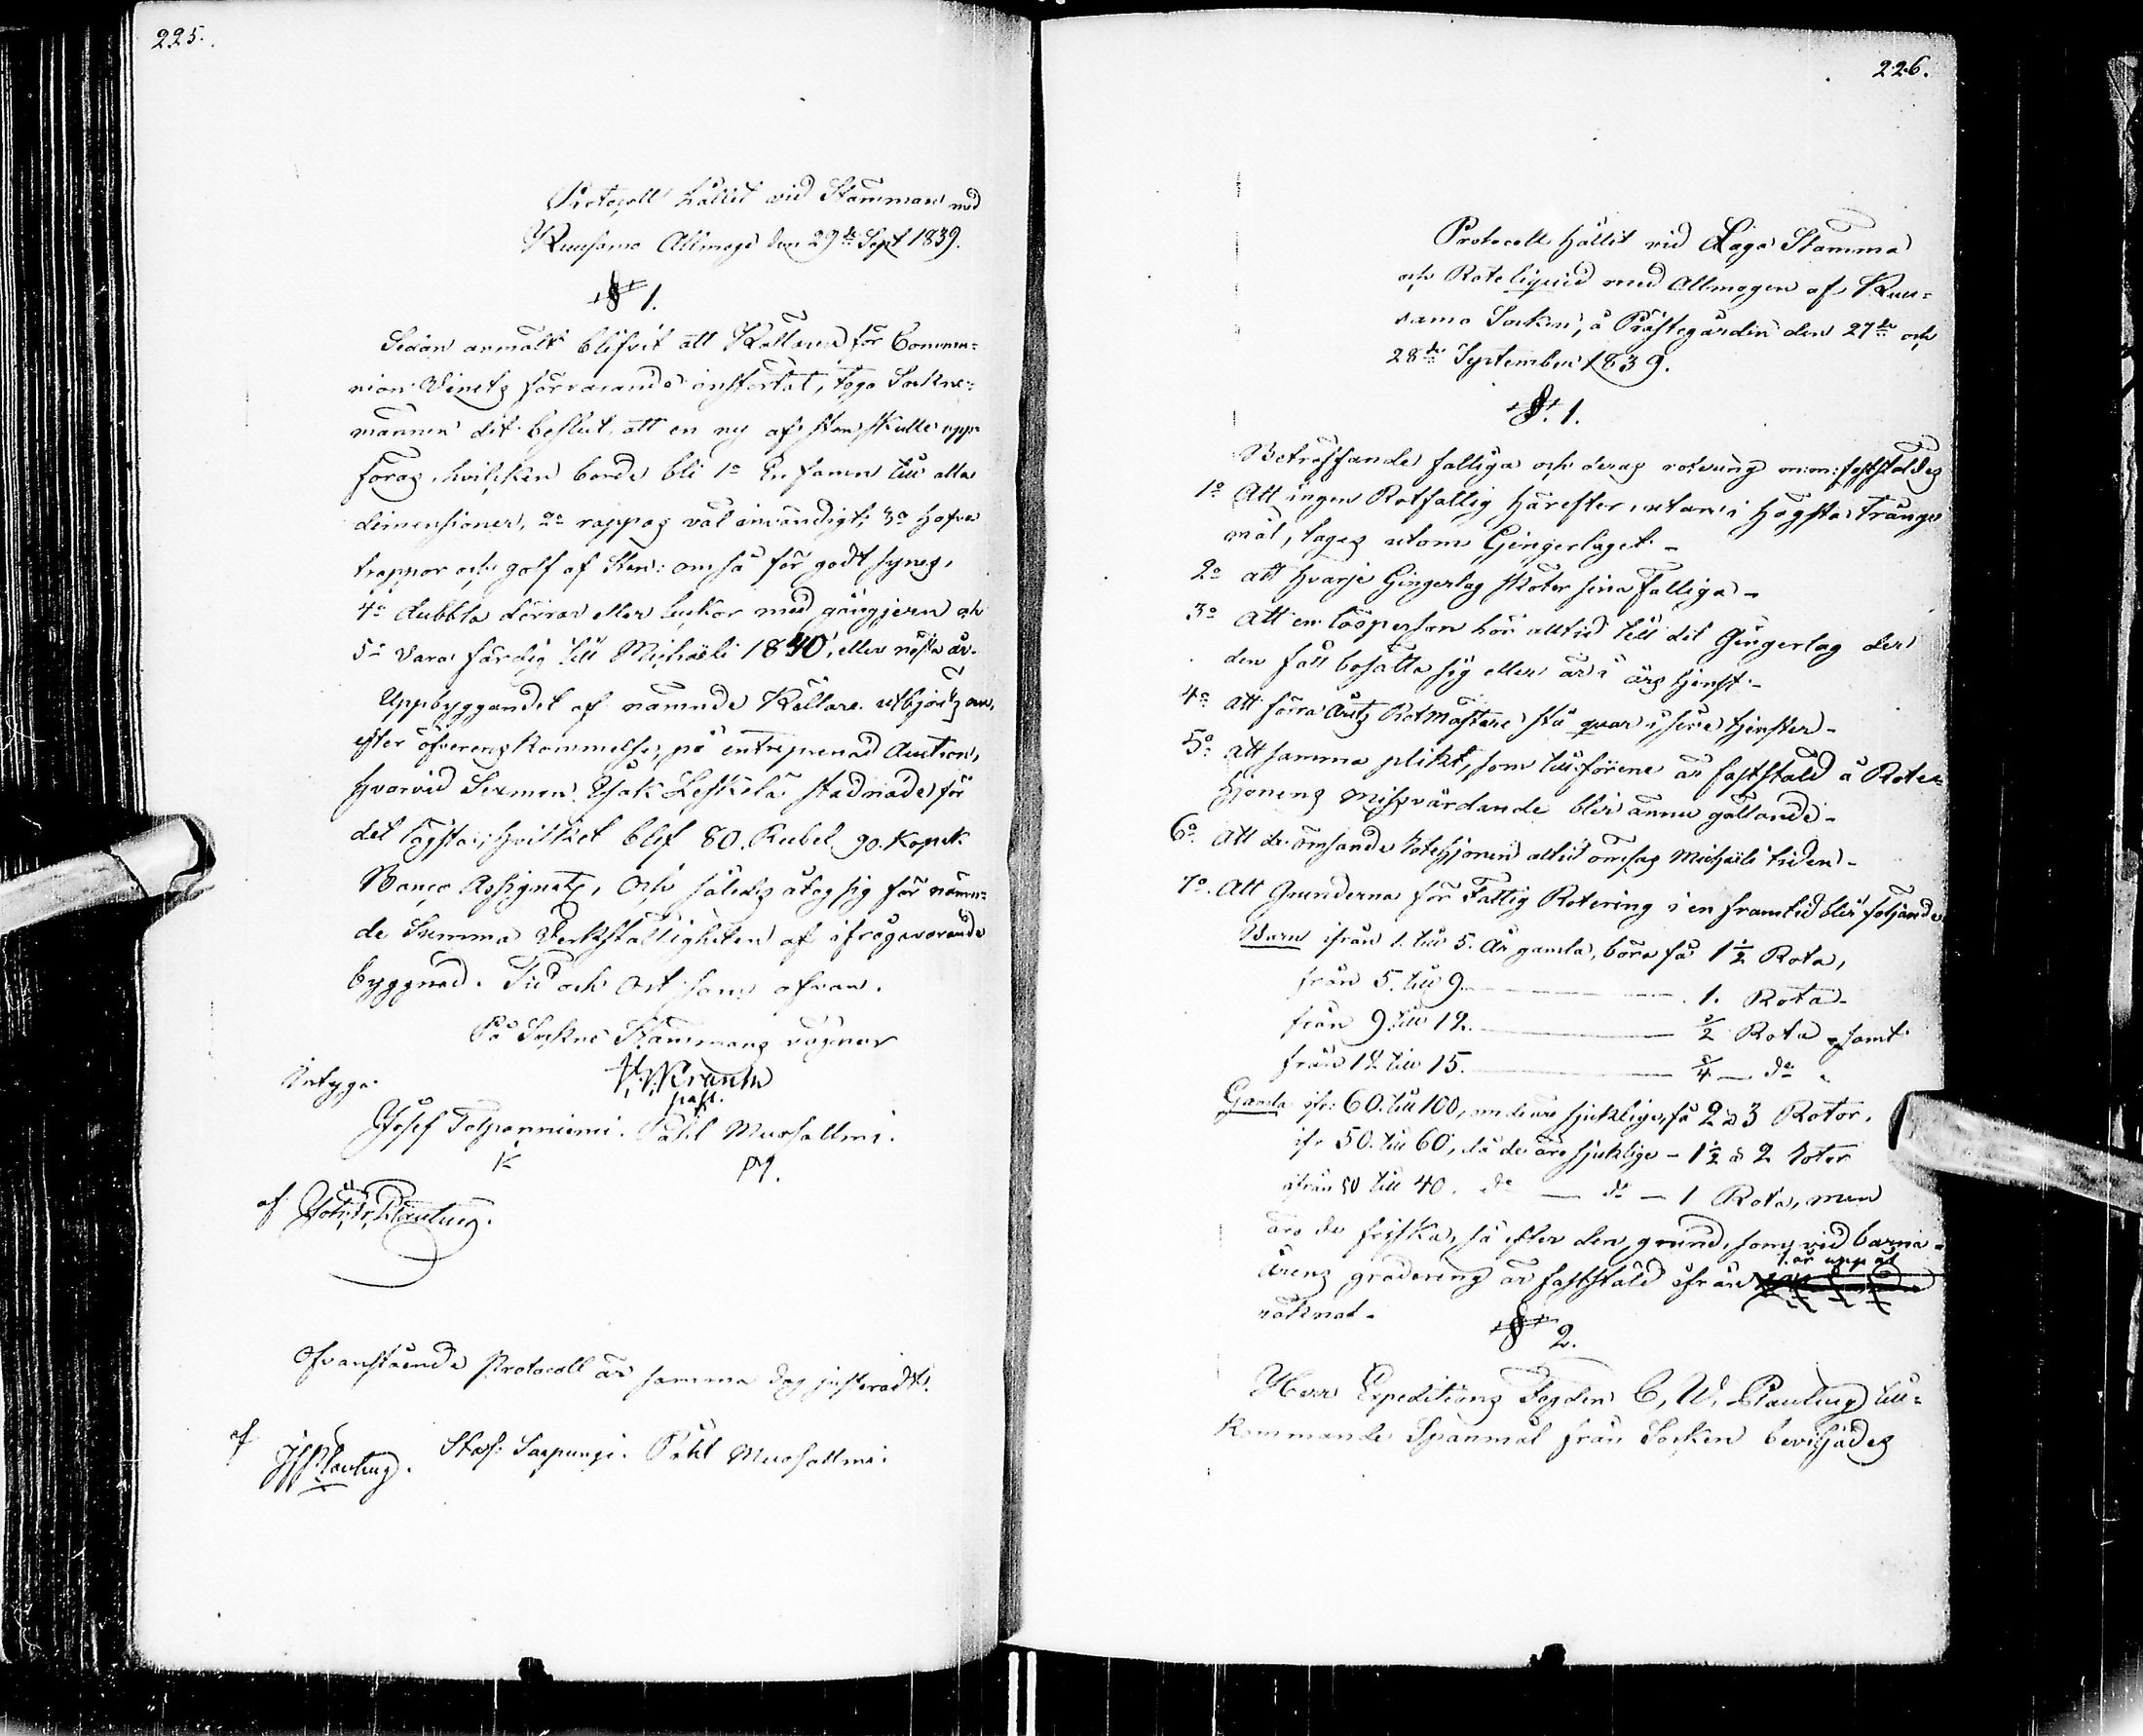 225.
Protocoll hållit vid Stämman med
Kuusamo Allmoge den 29de Sept 1839.
§ 1.
Sedan anmält blifvit att Källaren för Commu-
nion Vinets förvarande instörtat, togo Sockne-
männen det beslut att en ny af sten skulle upp-
föras, hvilcken borde bli 1o En famn till alla
dimensioner, 2o rappas väl invändigt; 3o hafva
trappor och golf af sten: om så för godt synes,
4o dubbla dörrar eller luckor med gångjern och
5o vara färdig till Michaëli 1840, eller nästa år.
Uppbyggandet af nämnde Källare utbjöds nu,
efter öfverenskommelse, på entreprenad Auction,
hvarvid Sexman Esak Leskelä stadnade för
det lägsta, hvilket blef 80. Rubel 90. Kopek
Banco Assignats, Och således åtog sig för nämn-
de Summa Verkställigheten af ifrågavarande
byggnad. Tid och Ort som ofvan.
På Sockne Stämmans vägnar
Intyga
past.
Josef Tolpanniemi. Påhl Murtallmi.
PM.
af
Ofvanstående Protocoll är samma dag justeradt.
af
Staf: Sarpungi. Påhl Murtallmi.
226.
Protocoll hållit vid Laga Stämma
och Roteliquid med Allmogen af Kuu-
samo Socken, å Prästegården den 27de och
28de September 1839.
§. 1.
Beträffande fattiga och deras rotering m:m: fastställdes
1o Att ingen Rotfattig härefter, utan i högsta trångs
mål, tages utom Gingerlaget.-
2o att hvarje Gingerlag sköter sina fattiga -
3o Att en lösperson hör alltid till det Gingerlag der
den fått bosätta sig eller är i års tjenst.-
4o att förra årets Rotmästare stå quar i sine tjenster -
5o att samma plikt, som till förene är fastställd å Rote-
hjonens misvårdande blir ännu gällande -
6o Att de ömsande rotehjonen alltid ömsas Michaëli tiden -
7o. Att Grunderna för Fattig Rotering i en framtid blir följande
Barn ifrån 1. till 5. År gamla, böra få 1½ Rota,
från 5. till 9. 1. Rota -
från 9 till 12. ½ Rota samt
från 12 till 15. ¼ - do
Gamla ifr: 60. till 100, om de äro sjuklige, få 2 à 3 Rotor.
ifr 50. till 60, då de äro sjuklige - 1½ à 2 rotor
ifrån 50 till 40. do - do - 1 Rota, men
äro de friska, så efter den grund, som vid barna-
årens gradering är fastställd ifrån 1. år uppåt
räknat.
§ 2.
Herr Expeditions Fogden C. W. Planting till-
kommande Spanmål från Socken beviljades